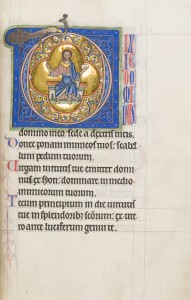 domino meo: sede a dextris meis.
Donec ponam inimicos tuos: scabel
lum pedum tuorum.
Virgam virtutis tue emittet domi
nus ex syon: dominare in medio
inimicorum tuorum.
Tecum principium in die virtutis
tue in splendorib; scōrum: ex ute
ro ante luciferum genui te.